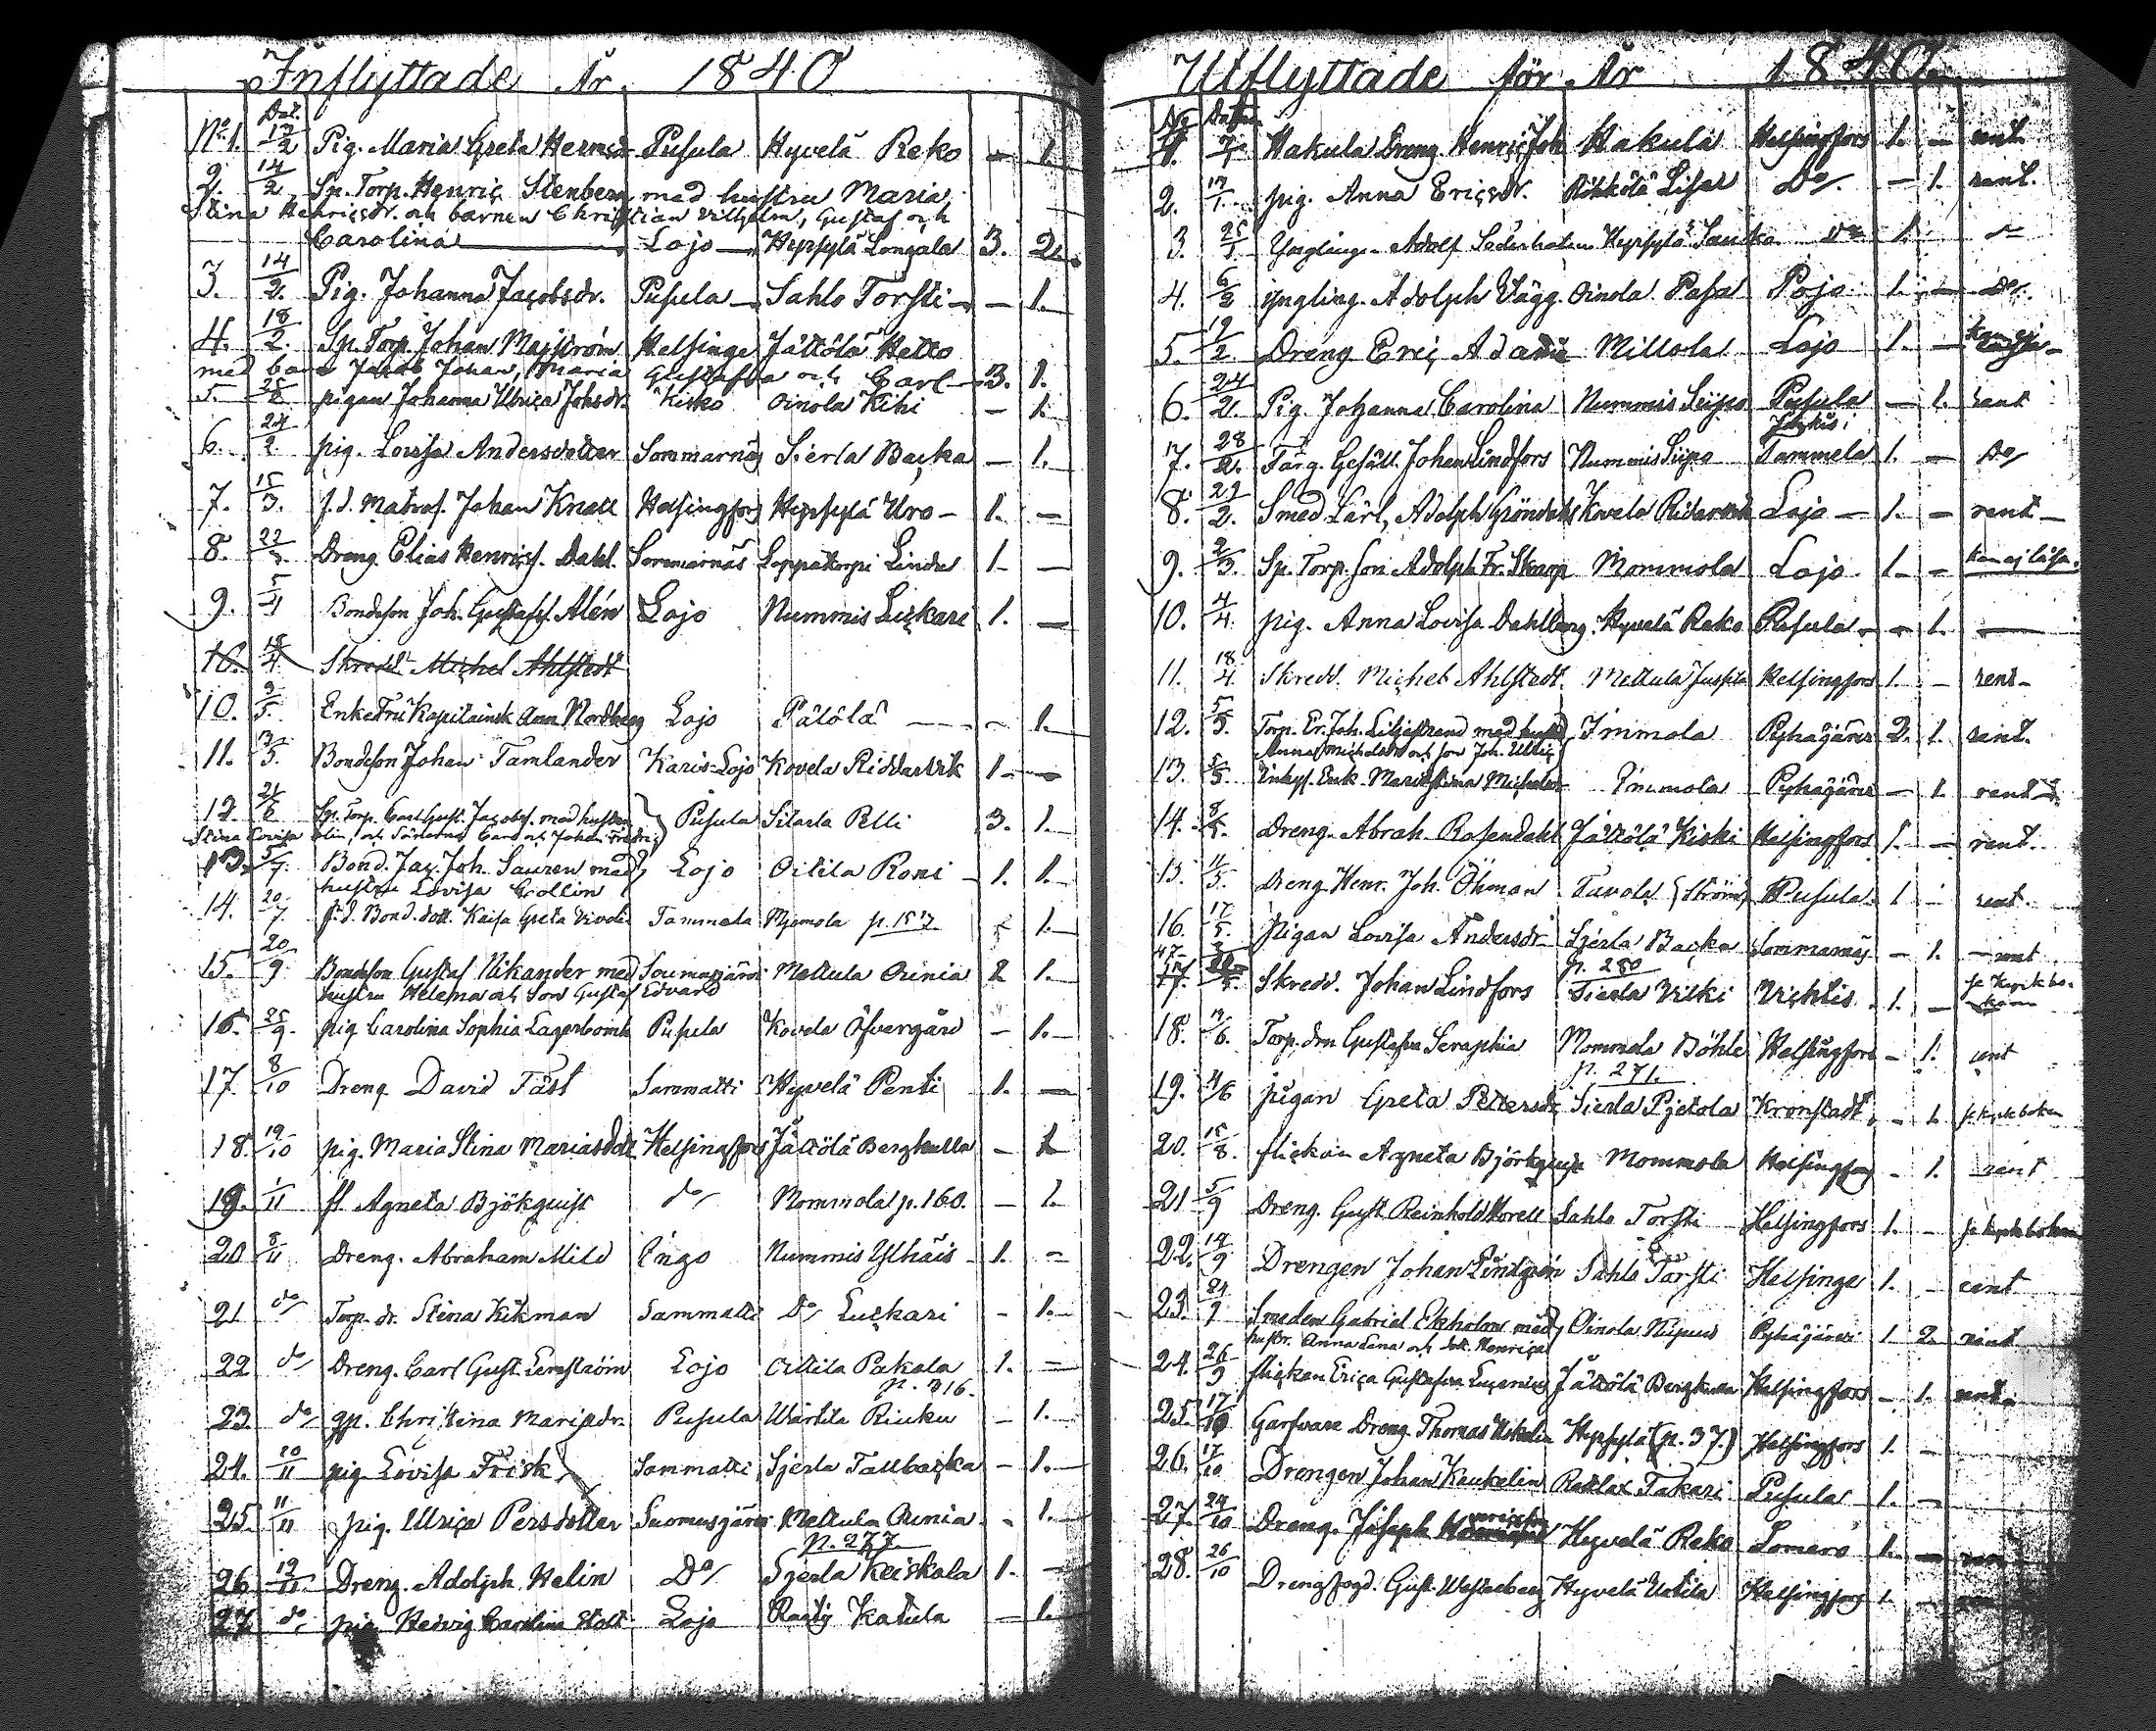 Inflyttade År 1840
Dat.
No 1. 12/2 Pig. Maria Greta Pusula Hyvelä Reko – 1.
2. 14/2 Sp. Torp. Henric Stenberg med hustru Maria
Stina Henricsdr. och barnen Christian Vilhelm, Gustaf och
Carolina Lojo Hyrsylä Longala 3. 2.
3. 14/2. Pig. Johanna Jacobsdr. Pusula Sahlo Torsti – 1.
4. 18/2. Sp. Torp. Johan Majström Helsinge Jättölä Hetto
med barn Jakob Johan, Maria Gustafva och Carl 3. 1.
5. pigan Johanna Ulrica Johsdr. Kisko Oinola Kihi – 1.
6. 24/2. pig. Lovisa Andersdotter Sommarnäs Sierla Backa – 1.
7. 15/3. f.d. Matros. Johan Knall Helsingfors Hyrsylä Uro – 1. –
8. 22/3. Dreng Elias Henrics. Dahl. Sommarnäs Loppatorpi Linda 1. –
9. 5/4 Bondeson Joh. Gustafss. Alén Lojo Nummis Luckare 1. –
10. 18/4. Skredd. Michel Ahlstedt
10. 3/5. Enkefru Kapitainsk Ann Nordberg Lojo Pätölä – 1.
11. 13/5. Bondeson Johan Tamlander Karis-Lojo Kovela Riddarvik 1. –
12. 21/6 Sp. Torp. Carl Gust. Jacobs. med hustru Pusula Sitarla Pelli 3. 1.
Stina Lovisa och Sönerna Carl och Johan Fredric
13. 5/7. Bond. Jac. Joh. Sauren med Lojo Oitila Roni – 1. 1.
hustru Lovisa Collin
14. 20/7 f.d. Bond. dott. Kaisa Greta Tammela p. 157. 1.
15. 20/9. Bondeson Gustaf Nikander med Soumusjärvi Mettula Ounia 2 1.
hustru Helena och Son Gustaf Edvard
16. 25/9. pig Carolina Sophia Lagerbomb Pusula Kovela Öfvergård – 1.
17. 8/10 Dreng David Täst Sammatti Hyvelä Penti 1. –
18. 19/10 pig. Maria Stina Mariasdott Helsingfors Jättölä Bergkulla – 1
19. 1/11 fl Agneta Björkquist do Mommola p. 160. – 1.
20 8/11 Dreng. Abraham Mild Ingo Nummis Ylhäis 1. –
21 do Torp. dr. Stina Kekman Sammatti Do Luckari – 1.
22 do Dreng. Carl Gust. Lojo Oittila Pakala 1. –
p. 316.
23. do Christina Mariasdr. Pusula Wärtila Riuku – 1.
24. 10/11 pig Lovisa Frisk Sammatti Sjerla Tallbacka – 1.
25. 11/11 pig. Ulrica Persdotter Suomusjärvi Mettula Ounia – 1.
p. 277.
26 12/11 Dreng. Adolph Helin Do Sjerla Keiskala 1. –
27 do pig Hedvig Carolina Lojo Katula – 1.
Utflyttade för År 1840.
No Datum
1. Hakula Dreng Henric Joh Hakula Helsingfors 1. – rent.
2. 17/1 pig. Anna Ericsdr. Röhkölä Lisas Do – 1. rent.
3. 25/1 Ynglingen Adolf Söderholm Hyrsylä Sauska do 1. do
4. 6/2 yngling. Adolph Vägg Oinola Pasa Pojo 1. – do
5. 19/2 Dreng Eric Adam Millola Lojo 1. – kan ej läsa
6. 24/2. Pig. Johanna Carolina Nummis Siipo Pusula – 1. rent
Jockis
7. 28/2. Färg. Gesäll. Johan Lindfors Nummis Siipo Tammela 1. – Do
8. 29/2. Smed Lärl. Adolph Gröndahl Kovela Ridarvik Lojo – 1. – rent –
9. 2/3. Sp. Torp. son Adolph Fr. Skarp Mommola Lojo 1. – kan ej läsa.
10. 4/4. pig. Anna Lovisa Dahlberg. Hyvelä Reko Pusula – 1. –
11. 18/4. Skredd. Michel Ahlstedt. Mettula Jussila Helsingfors 1. – rent –
12. 5/5. Torp. Er. Joh. Liljestrand med hustru Immola Pyhäjärvi 2. 1. rent.
Anna Michelsdr och son Joh. Ulric
13. 5/5. Inhys. Enk. Maria Stina Michelsdr Immola Pyhäjärvi – 1 rent
14. 8/5. Dreng. Abrah. Rosendahl Jättölä Kiski Helsingfors 1. – rent.
15. 11/5. Dreng Henr. Joh. Öhman Tavola Ström Pusula 1 – rent
16. 17/5. Pigan Lovisa Andersdr Sjerla Backa Sommarnäs – 1. – rent
p. 280
17. Skredd. Johan Lindfors Sierla Vilki Vichtis 1. – se kyrkboken
18. 11/6. Torp. drn Gustafva Seraphia Mommola Böhle Helsingfors – 1. rent
p. 271.
19. 11/6 pigan Greta Pettersdr Sierla Pjetola Kronstadt – 1. se kyrkboken
20. 15/8. flickan Agneta Björkquist Mommola Helsingfors – 1. rent
21 5/9 Dreng. Gust Reinhold Morell Sahlo Torsti Helsingfors 1. – se kyrkboken
22. 14/9 Drengen Johan Lindgrén Sahlo Torsti Helsinge 1. – rent
23. 24/9 Smeden Gabriel Ekholm med Oinola Nipuus Pyhäjärvi 1 2. rent
hustr. Anna Lena och dott. Henrica
24. 26/9 flickan Erica Gustafva Jättölä Bergkulla Helsingfors – 1. rent.
25. 17/10 Garfvare Dreng. Thomas Hyrsylä (p. 37.) Helsingfors 1. –
26. 17/10 Drengen Johan Kaukelin Rattlax Takari Pusula 1. –
27. 24/10 Dreng. Joseph Henricson Hyvelä Reko Somero 1. – rent
28. 26/10 Drengfogd. Gust. Westerberg Hyvelä Uotila Helsingfors 1. –